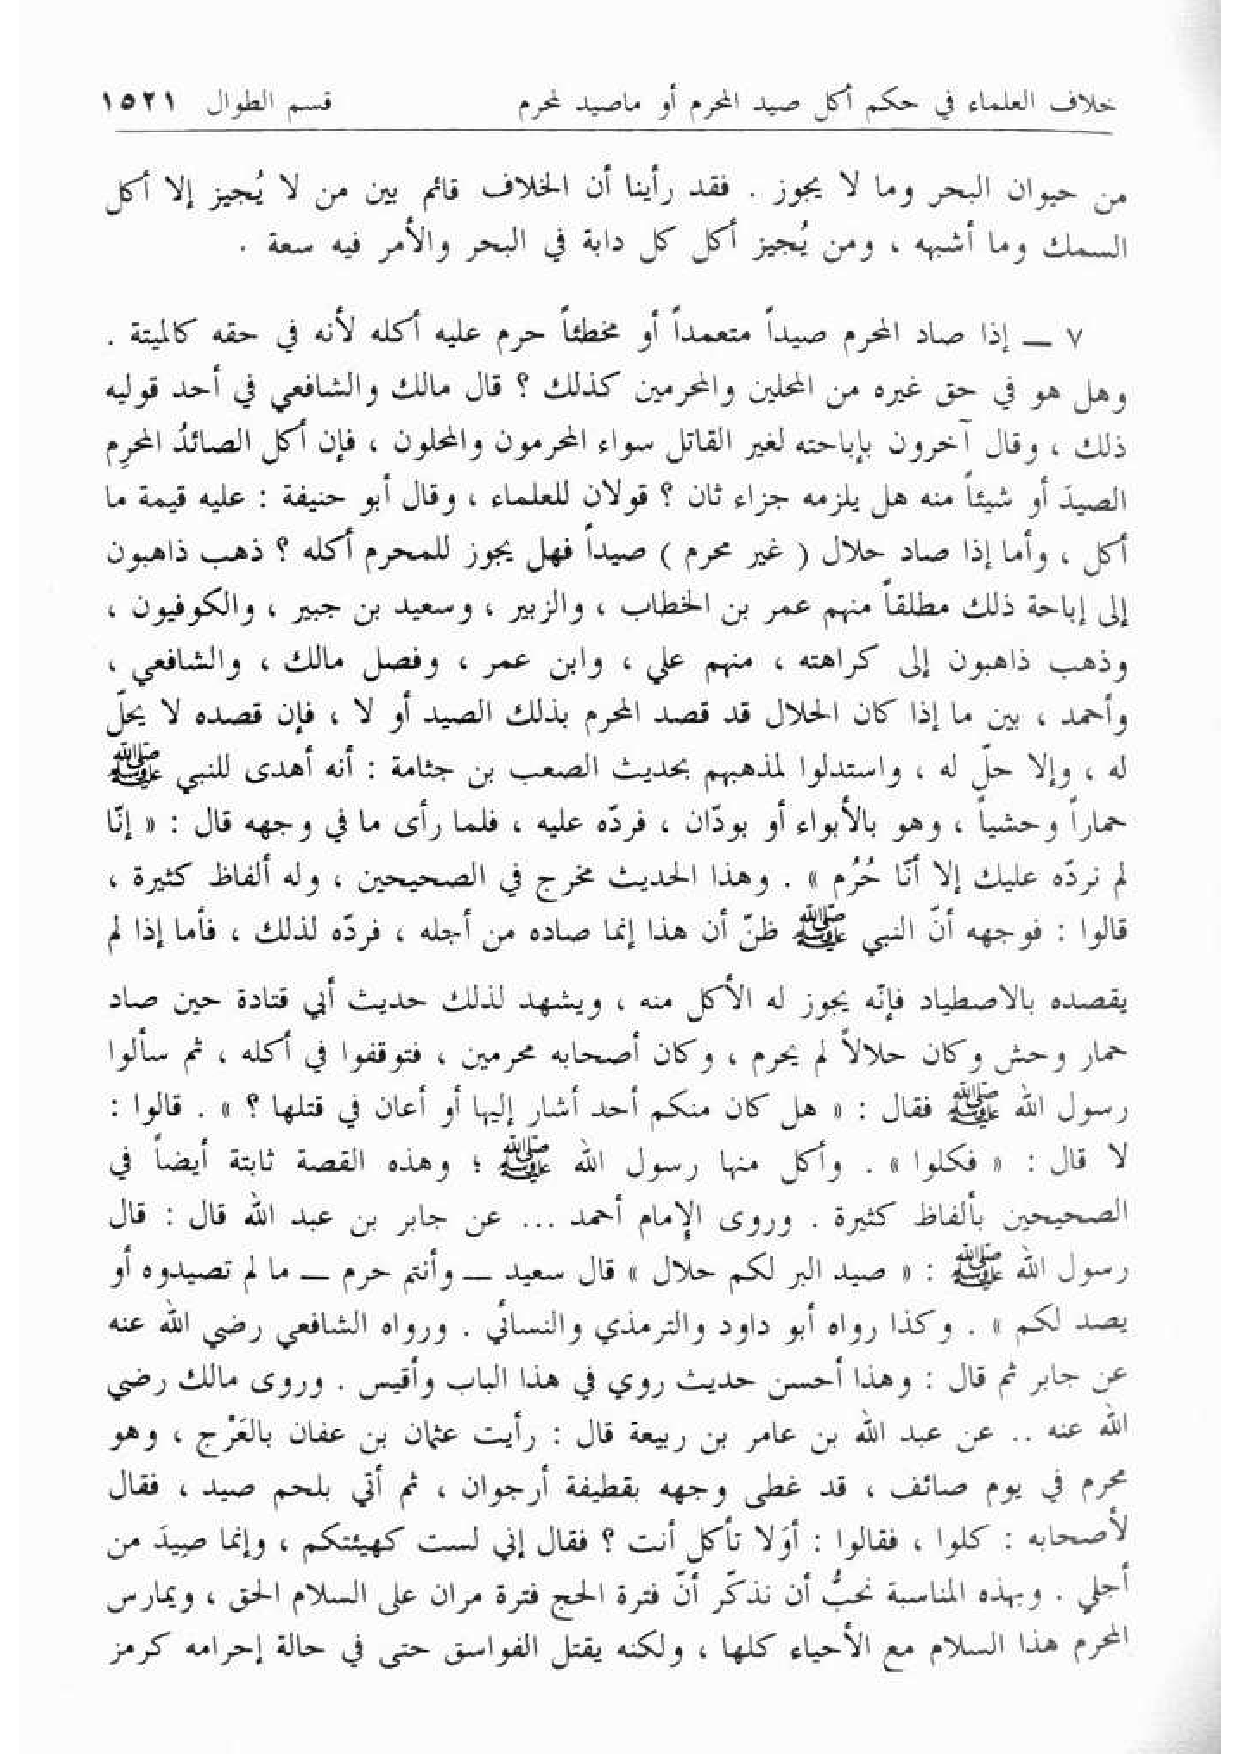 خلاف العلماء في حكم أكل صيد المحرم أو ماصيد لمحرم قسم الطوال ١٥٢١
من حيوان البحر وما لا يجوز . فقد رأينا أن الخلاف قائم بين من لا يُجيز إلا أكل
السمك وما أشبهه ، ومن يُجيز أكل كل دابة في البحر والأمر فيه سعة .
٧ ــ إذا صاد المحرم صيداً متعمداً أو مخطئاً حرم عليه أكله لأنه في حقه كالميتة .
وهل هو في حق غيره من المحلين والمحرمين كذلك ؟ قال مالك والشافعي في أحد قوليه
ذلك ، وقال آخرون بإباحته لغير القاتل سواء المحرمون والمحلون ، فإن أكل الصائدُ المحرِم
الصيدَ أو شيئاً منه هل يلزمه جزاء ثان ؟ قولان للعلماء ، وقال أبو حنيفة : عليه قيمة ما
أكل ، وأما إذا صاد حلال ( غير محرم ) صيداً فهل يجوز للمحرم أكله ؟ ذهب ذاهبون
إلى إباحة ذلك مطلقاً منهم عمر بن الخطاب ، والزبير ، وسعيد بن جبير ، والكوفيون ،
وذهب ذاهبون إلى كراهته ، منهم علي ، وابن عمر ، وفصل مالك ، والشافعي ،
وأحمد ، بين ما إذا كان الحلال قد قصد المحرم بذلك الصيد أو لا ، فإن قصده لا يحلّ
له ، وإلا حلّ له ، واستدلوا لمذهبهم بحديث الصعب بن جثامة : أنه أهدى للنبي ﷺ
حماراً وحشياً ، وهو بالأبواء أو بودّان ، فردّه عليه ، فلما رأى ما في وجهه قال : « إنّا
لم نردّه عليك إلا أنّا حُرُم » . وهذا الحديث مخرج في الصحيحين ، وله ألفاظ كثيرة ،
قالوا : فوجهه أنّ النبي ﷺ ظنّ أن هذا إنما صاده من أجله ، فردّه لذلك ، فأما إذا لم
يقصده بالاصطياد فإنّه يجوز له الأكل منه ، ويشهد لذلك حديث أبي قتادة حين صاد
حمار وحش وكان حلالاً لم يحرم ، وكان أصحابه محرمين ، فتوقفوا في أكله ، ثم سألوا
رسول الله ﷺ فقال : « هل كان منكم أحد أشار إليها أو أعان في قتلها ؟ » . قالوا :
لا قال : « فكلوا » . وأكل منها رسول الله ﷺ ؛ وهذه القصة ثابتة أيضاً في
الصحيحين بألفاظ كثيرة . وروى الإمام أحمد ... عن جابر بن عبد الله قال : قال
رسول الله ﷺ : « صيد البر لكم حلال » قال سعيد ــ وأنتم حرم ــ ما لم تصيدوه أو
يصد لكم » . وكذا رواه أبو داود والترمذي والنسائي . ورواه الشافعي رضي الله عنه
عن جابر ثم قال : وهذا أحسن حديث روي في هذا الباب وأقيس . وروى مالك رضي
الله عنه .. عن عبد الله بن عامر بن ربيعة قال : رأيت عثمان بن عفان بالعَرْج ، وهو
محرم في يوم صائف ، قد غطى وجهه بقطيفة أرجوان ، ثم أتي بلحم صيد ، فقال
لأصحابه : كلوا ، فقالوا : أوَلا تأكل أنت ؟ فقال إني لست كهيئتكم ، وإنما صِيدَ من
أجلي . وبهذه المناسبة نحبُّ أن نذكّر أنّ فترة الحج فترة مران على السلام الحق ، ويمارس
المحرم هذا السلام مع الأحياء كلها ، ولكنه يقتل الفواسق حتى في حالة إحرامه كرمز